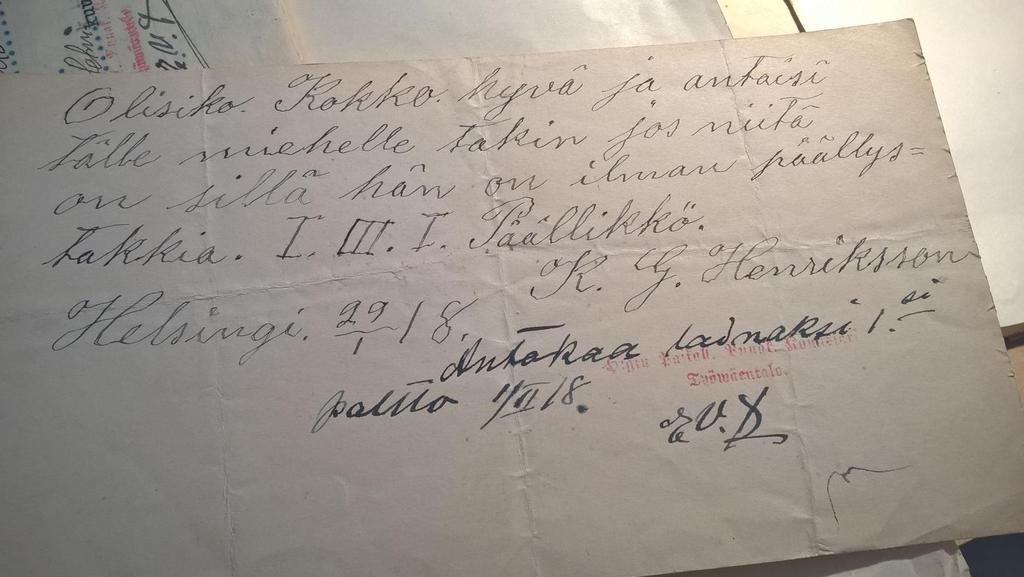 Olisiko. Kokko. hyvä ja antaisi
tälle miehelle takin jos niitä
on sillä hän on ilman päällys=
takkia. I. III. I. Päällikkö.
K. G. Henriksson
Helsingi. 29/1 18.
Antakaa lainaksi 1.si
paltto 1/II 18.
Työwäentalo.
E.V.